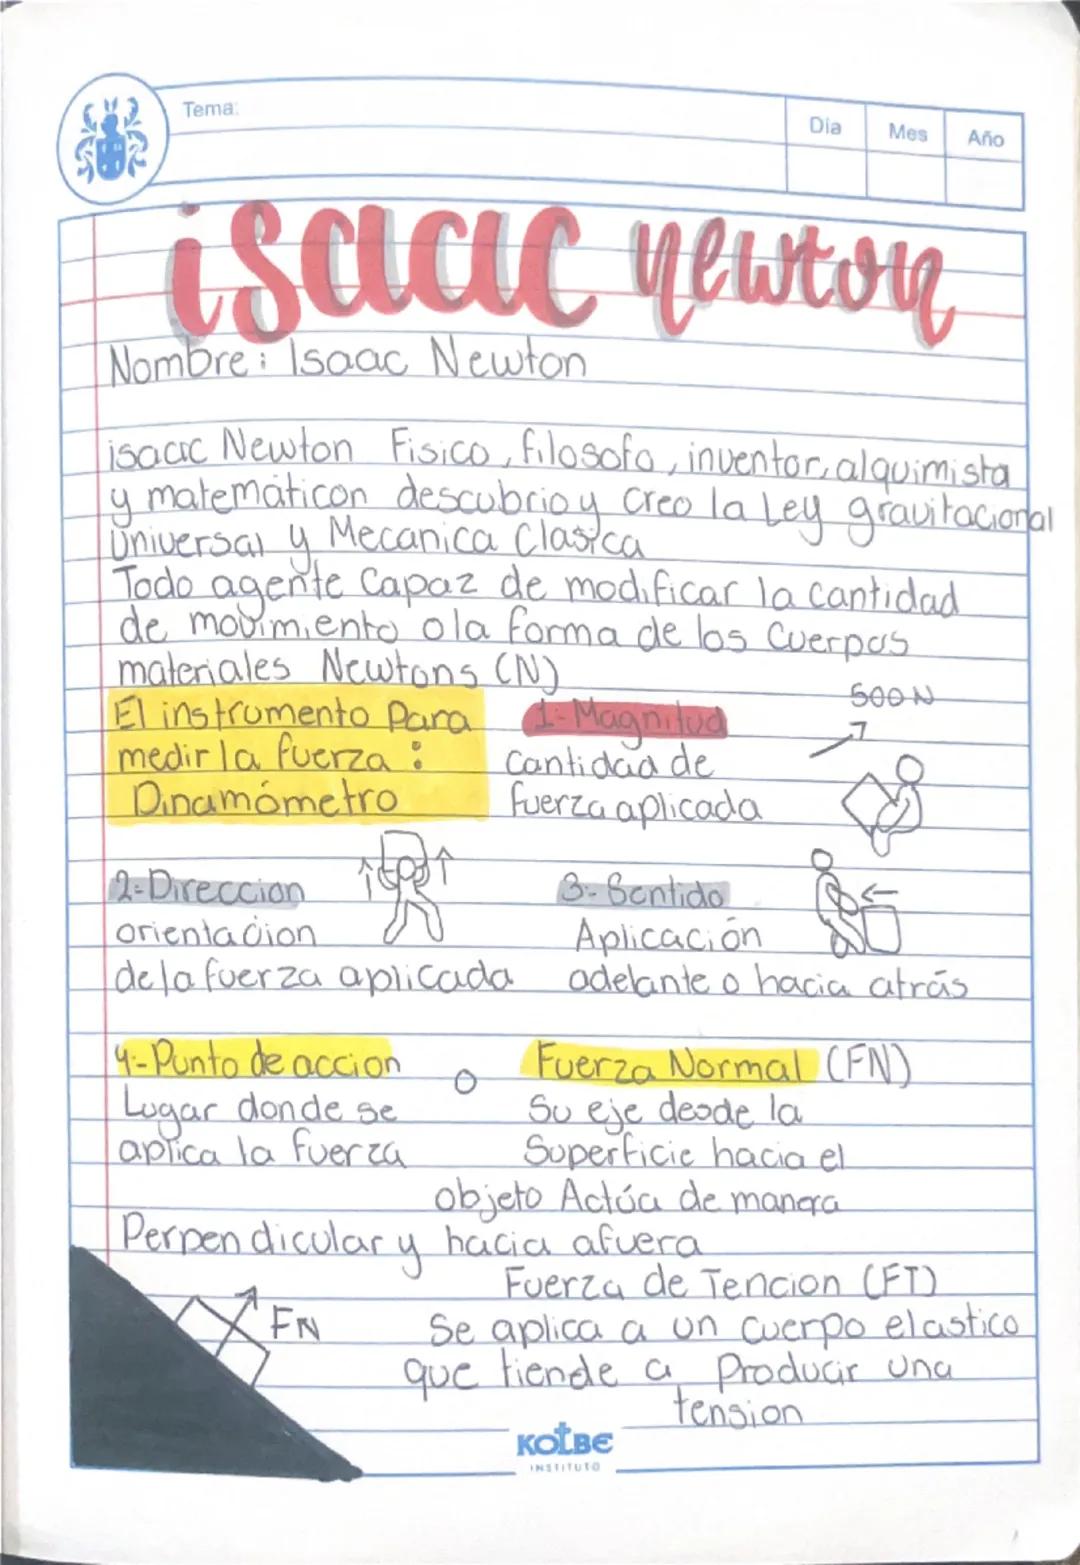 Tema:
Día Mes Año
isaac newton
Nombre: Isaac Newton
isaac Newton Fisico, filosofo, inventor, alquimista
y matemáticon descubrio y creo la Ley gravitacional
Universal y Mecanica Clasica
Todo agente Capaz de modificar la cantidad
de movimiento o la forma de los Cuerpos
materiales Newtons (N)
500 N
El instrumento Para
medir la fuerza :
Dinamómetro
1-Magnitud
Cantidad de
fuerza aplicada
2-Direccion
orientacion
de la fuerza aplicada
3-Sentido
Aplicación
adelante o hacia atrás
4-Punto de accion
Lugar donde se
aplica la fuerza
Fuerza Normal (FN)
Su eje desde la
Superficie hacia el
objeto Actúa de manera
Perpendicular y hacia afuera
FN
Fuerza de Tencion (FT)
Se aplica a un cuerpo elastico
que tiende a Producir una
tension
KOLBE
INSTITUTO